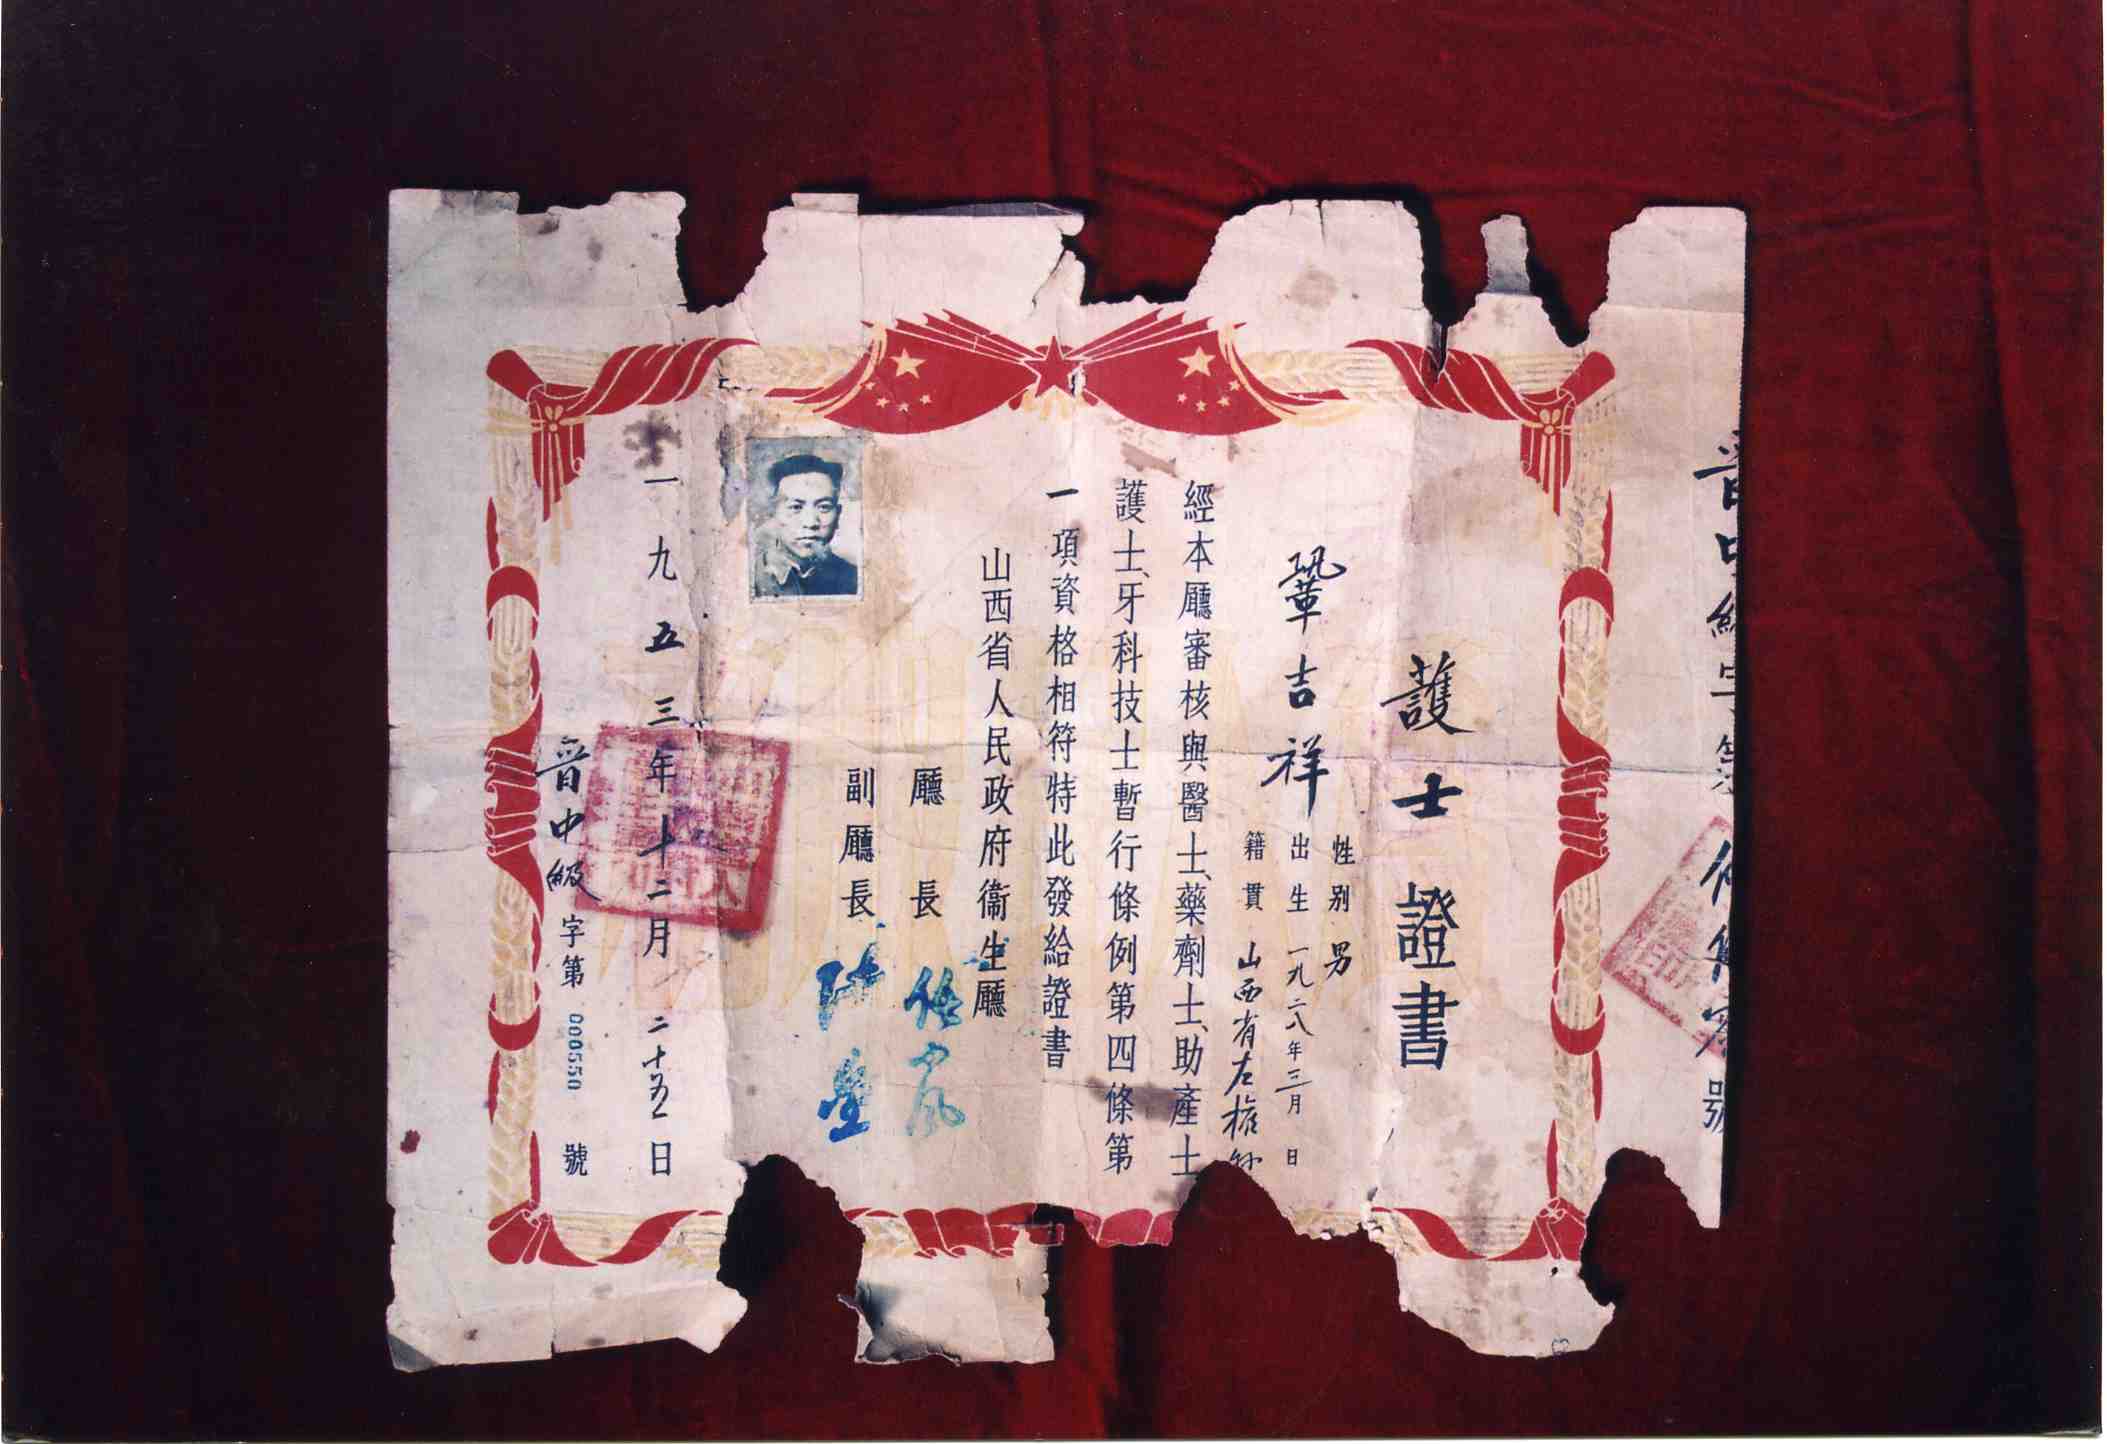 護士證書
鞏吉祥
性别 男
出生 一九二八年三月 日
籍貫 山西省左權
經本廳審核與醫士、藥劑士、助產士、
護士、牙科技士暫行條例第四條第
一項資格相符特此發給證書
山西省人民政府衞生廳
廳長
副廳長
一九五三年十二月二十五日
晉中級字第000550號
號